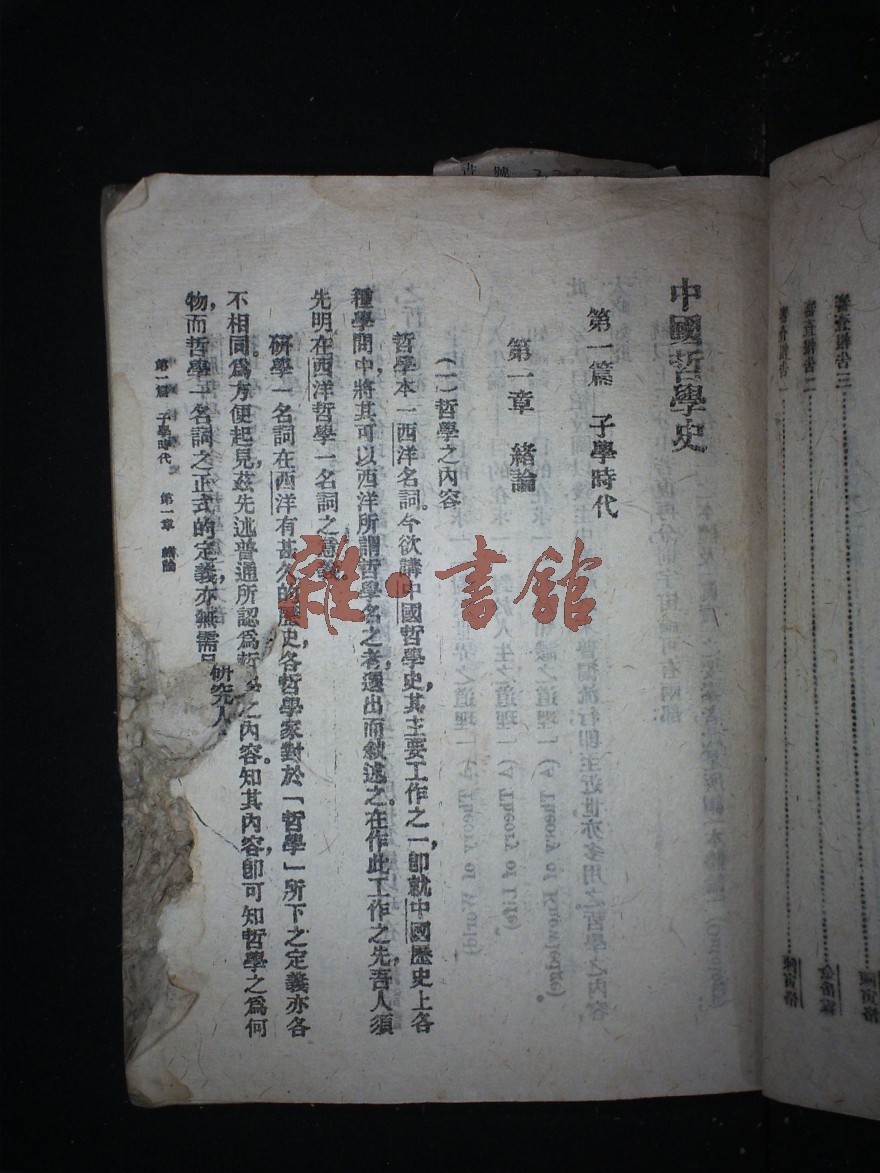 審查報告三
陳寅恪
審查報告二
金岳霖
審查報告一
陳寅恪
中國哲學史
第一篇 子學時代
第一章 緒論
(一)哲學之內容
哲學本一西洋名詞。今欲講中國哲學史,其主要工作之一,即就中國歷史上各
種學問中,將其可以西洋所謂哲學名之者,選出而敍述之。在作此工作之先,吾人須
先明在西洋哲學一名詞之意義。
研學一名詞在西洋有甚久的歷史,各哲學家對於「哲學」所下之定義亦各
不相同。爲方便起見,茲先述普通所認爲哲學之內容。知其內容,即可知哲學之爲何
物,而哲學一名詞之正式的定義,亦無需
研究人
第一篇 子學時代 第一章 緒論
雜·書館
書 號